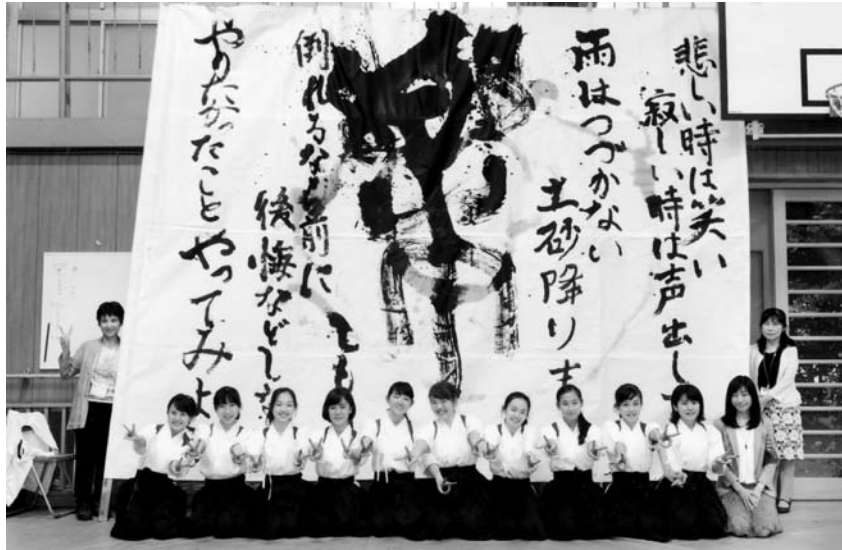 悲しい時は笑い
寂しい時は声出し
雨はつづかない
土砂降り
倒れるなら前に
後悔などしな
やりたかったこと やってみよ